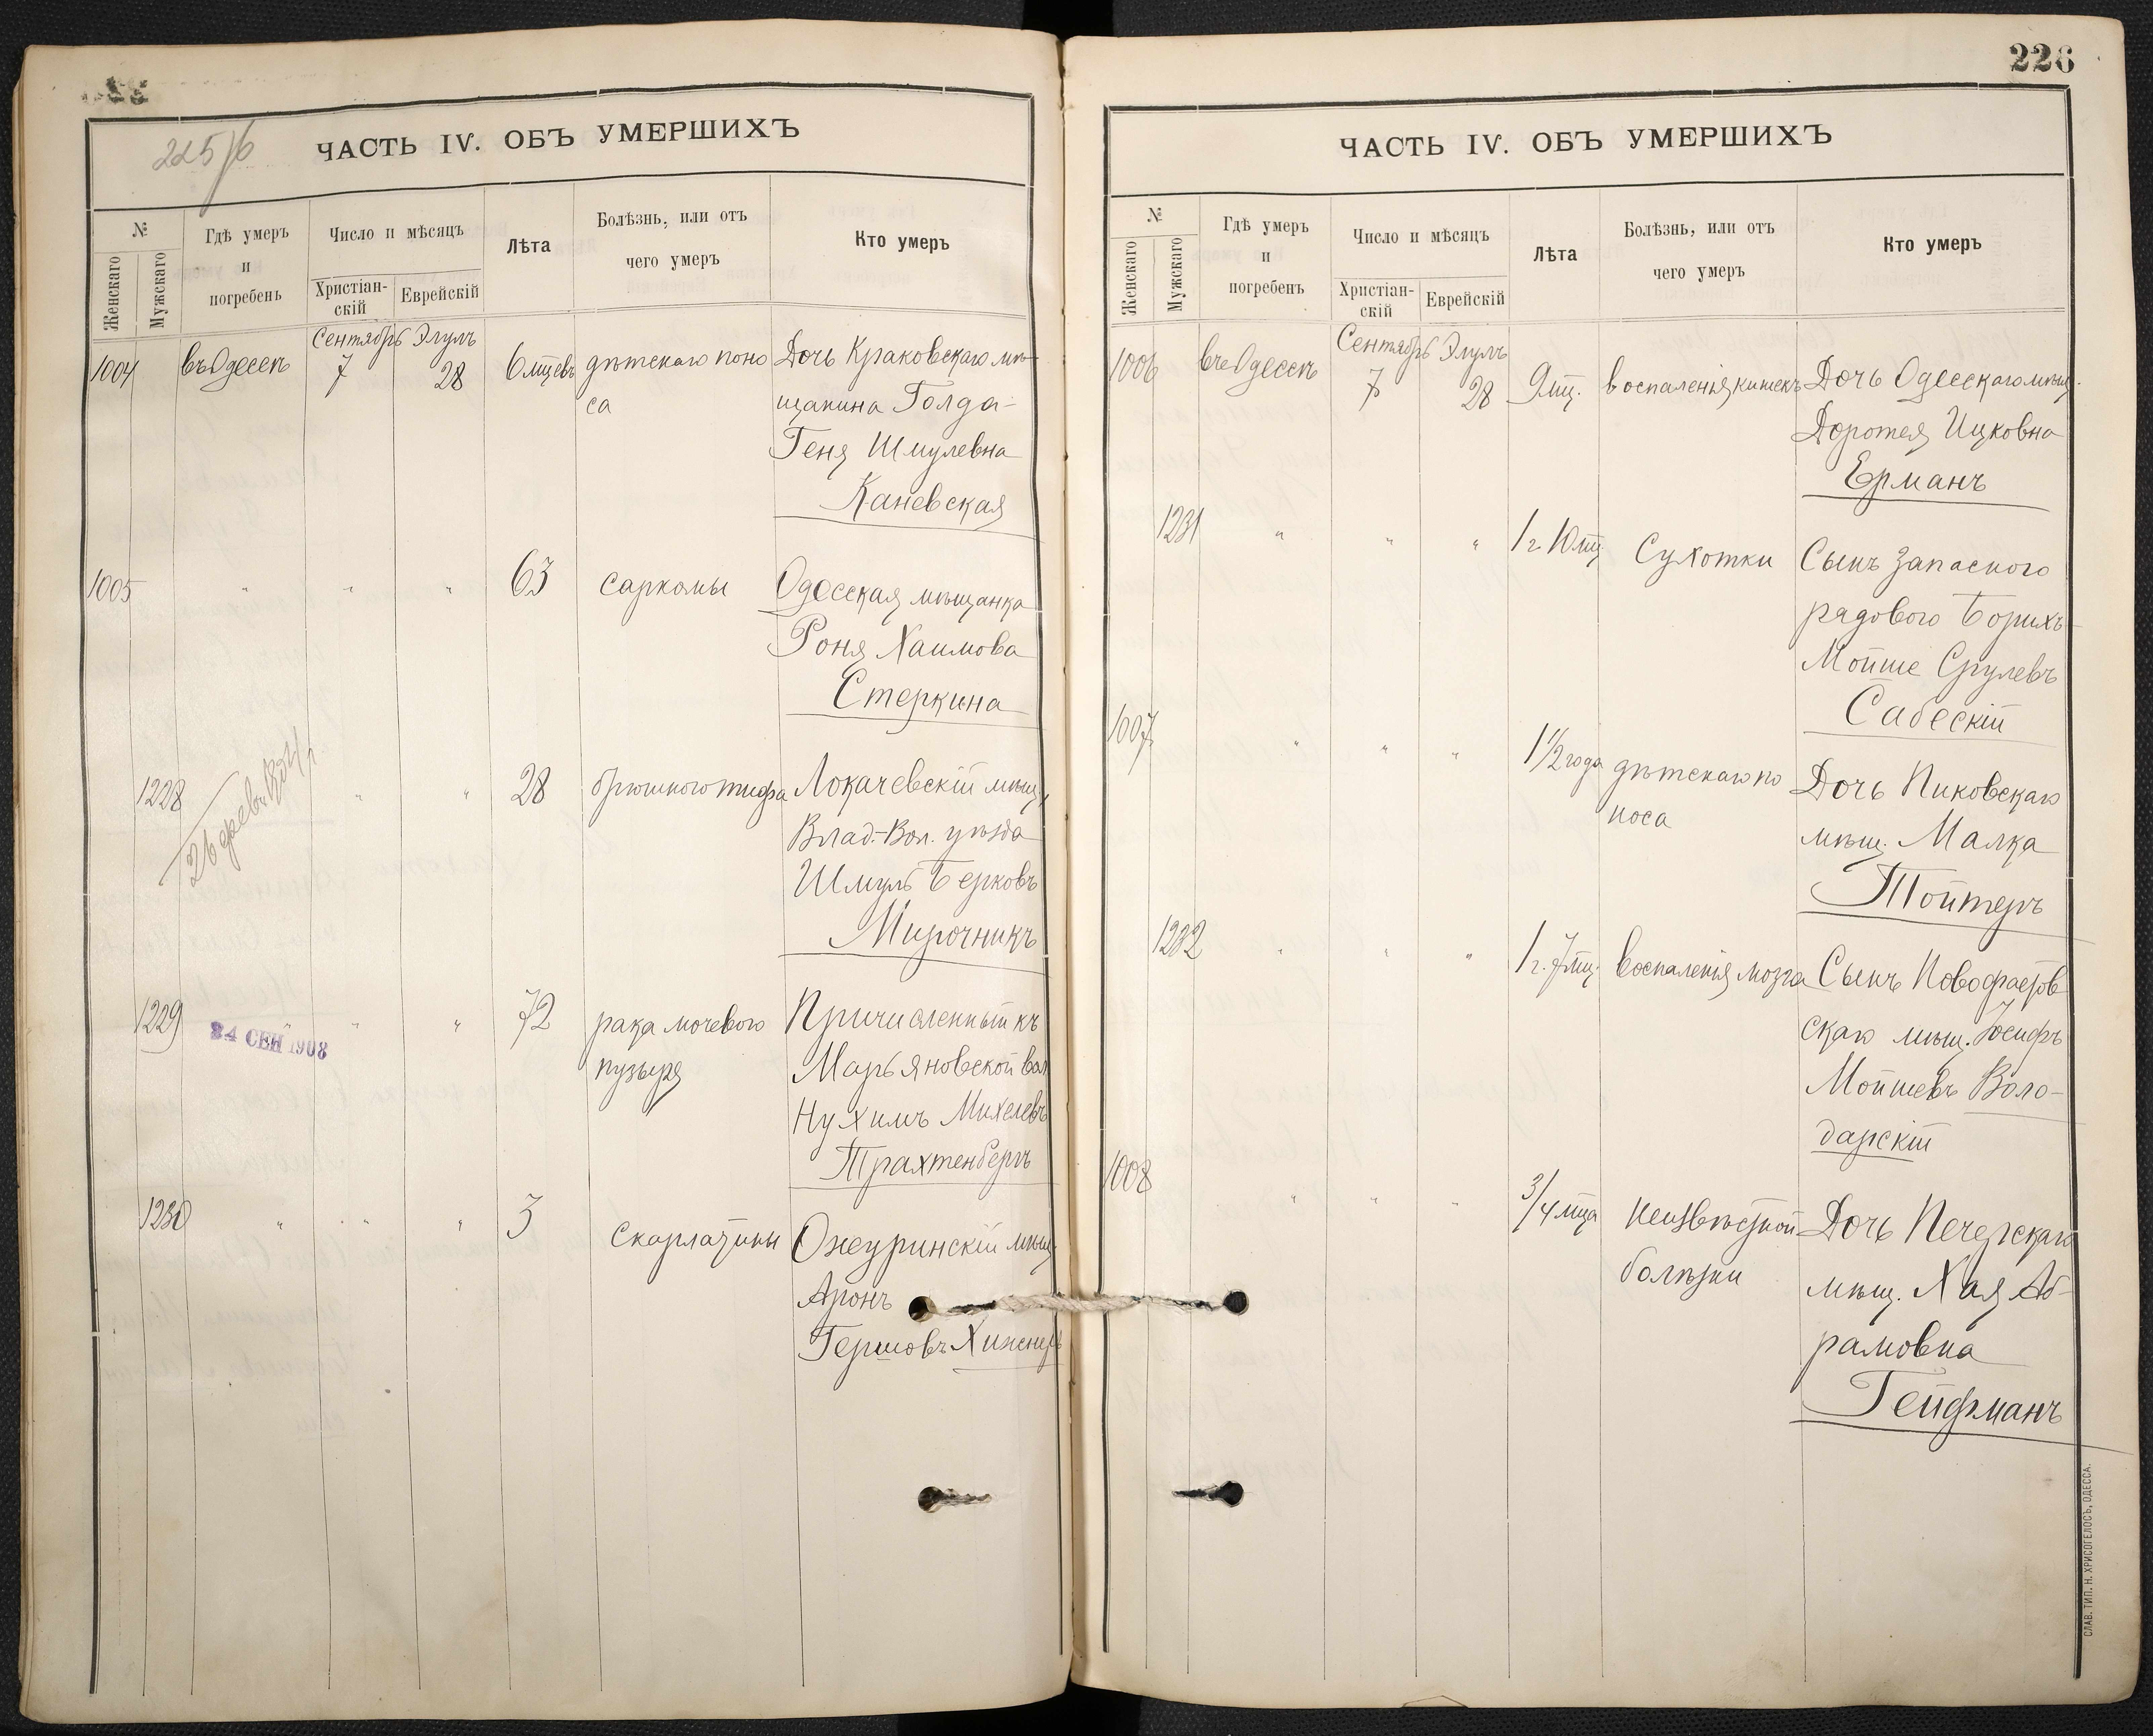 225/6
ЧАСТЬ IV. ОБЪ УМЕРШИХЪ
№
Женскаго
Мужскаго
Гдѣ умеръ
и
погребенъ
Число и мѣсяцъ
Христіан-
скій
Еврейскій
Лѣта
Болѣзнь, или отъ
чего умеръ
Кто умеръ
Сентябрь Элулъ
1004 въ Одессѣ 7 28 6 мцевъ дѣтскаго поно
са
Дочь Краковскаго мѣ-
щанина Голда-
Геня Шмулевна
Каневская
1005 " " " 63 саркомы Одесская мѣщанка
Роня Хаимова
Стеркина
1228 " " 28 брюшного тифа Локачевскій мѣщ.
Влад.-Вол. уѣзда
Шмуль Берковъ
Мирочникъ
1229 24 СЕН 1908 " " 72 рака мочевого
пузыря
Причисленный къ
Марьяновской вол
Нухимъ Михелевъ
Трахтенбергъ
1230 " " " 3 скарлатины Ожуринскій мѣщ.
Аронъ
Гершовъ Хижнеръ
226
ЧАСТЬ IV. ОБЪ УМЕРШИХЪ
№
Женскаго
Мужскаго
Гдѣ умеръ
и
погребенъ
Число и мѣсяцъ
Христіан-
скій
Еврейскій
Лѣта
Болѣзнь, или отъ
чего умеръ
Кто умеръ
Сентябрь Элулъ
1006 въ Одессѣ 7 28 9 мц. воспаленія кишекъ Дочь Одесскаго мѣщ.
Доротея Ицковна
Ерманъ
1231 " " " 1 г. 10 мц. Сухотки Сынъ запасного
рядового Борихъ-
Мойше Срулевъ
Сабескій
1007 " " " 1 1/2 года дѣтскаго по
носа
Дочь Пиковскаго
мѣщ. Малка
Тойтеръ
1232 " " " 1 г. 7 мц. Воспаленія мозга Сынъ Новофастов
скаго мѣщ. Іосифъ
Мойшевъ Воло-
дарскій
1008 " " " 3/4 мца неизвѣстной
болѣзни
Дочь Печерскаго
мѣщ. Хая Аб-
рамовна
Гейфманъ
СЛАВ. ТИП. Н. ХРИСОГЕЛОСЪ, ОДЕССА.